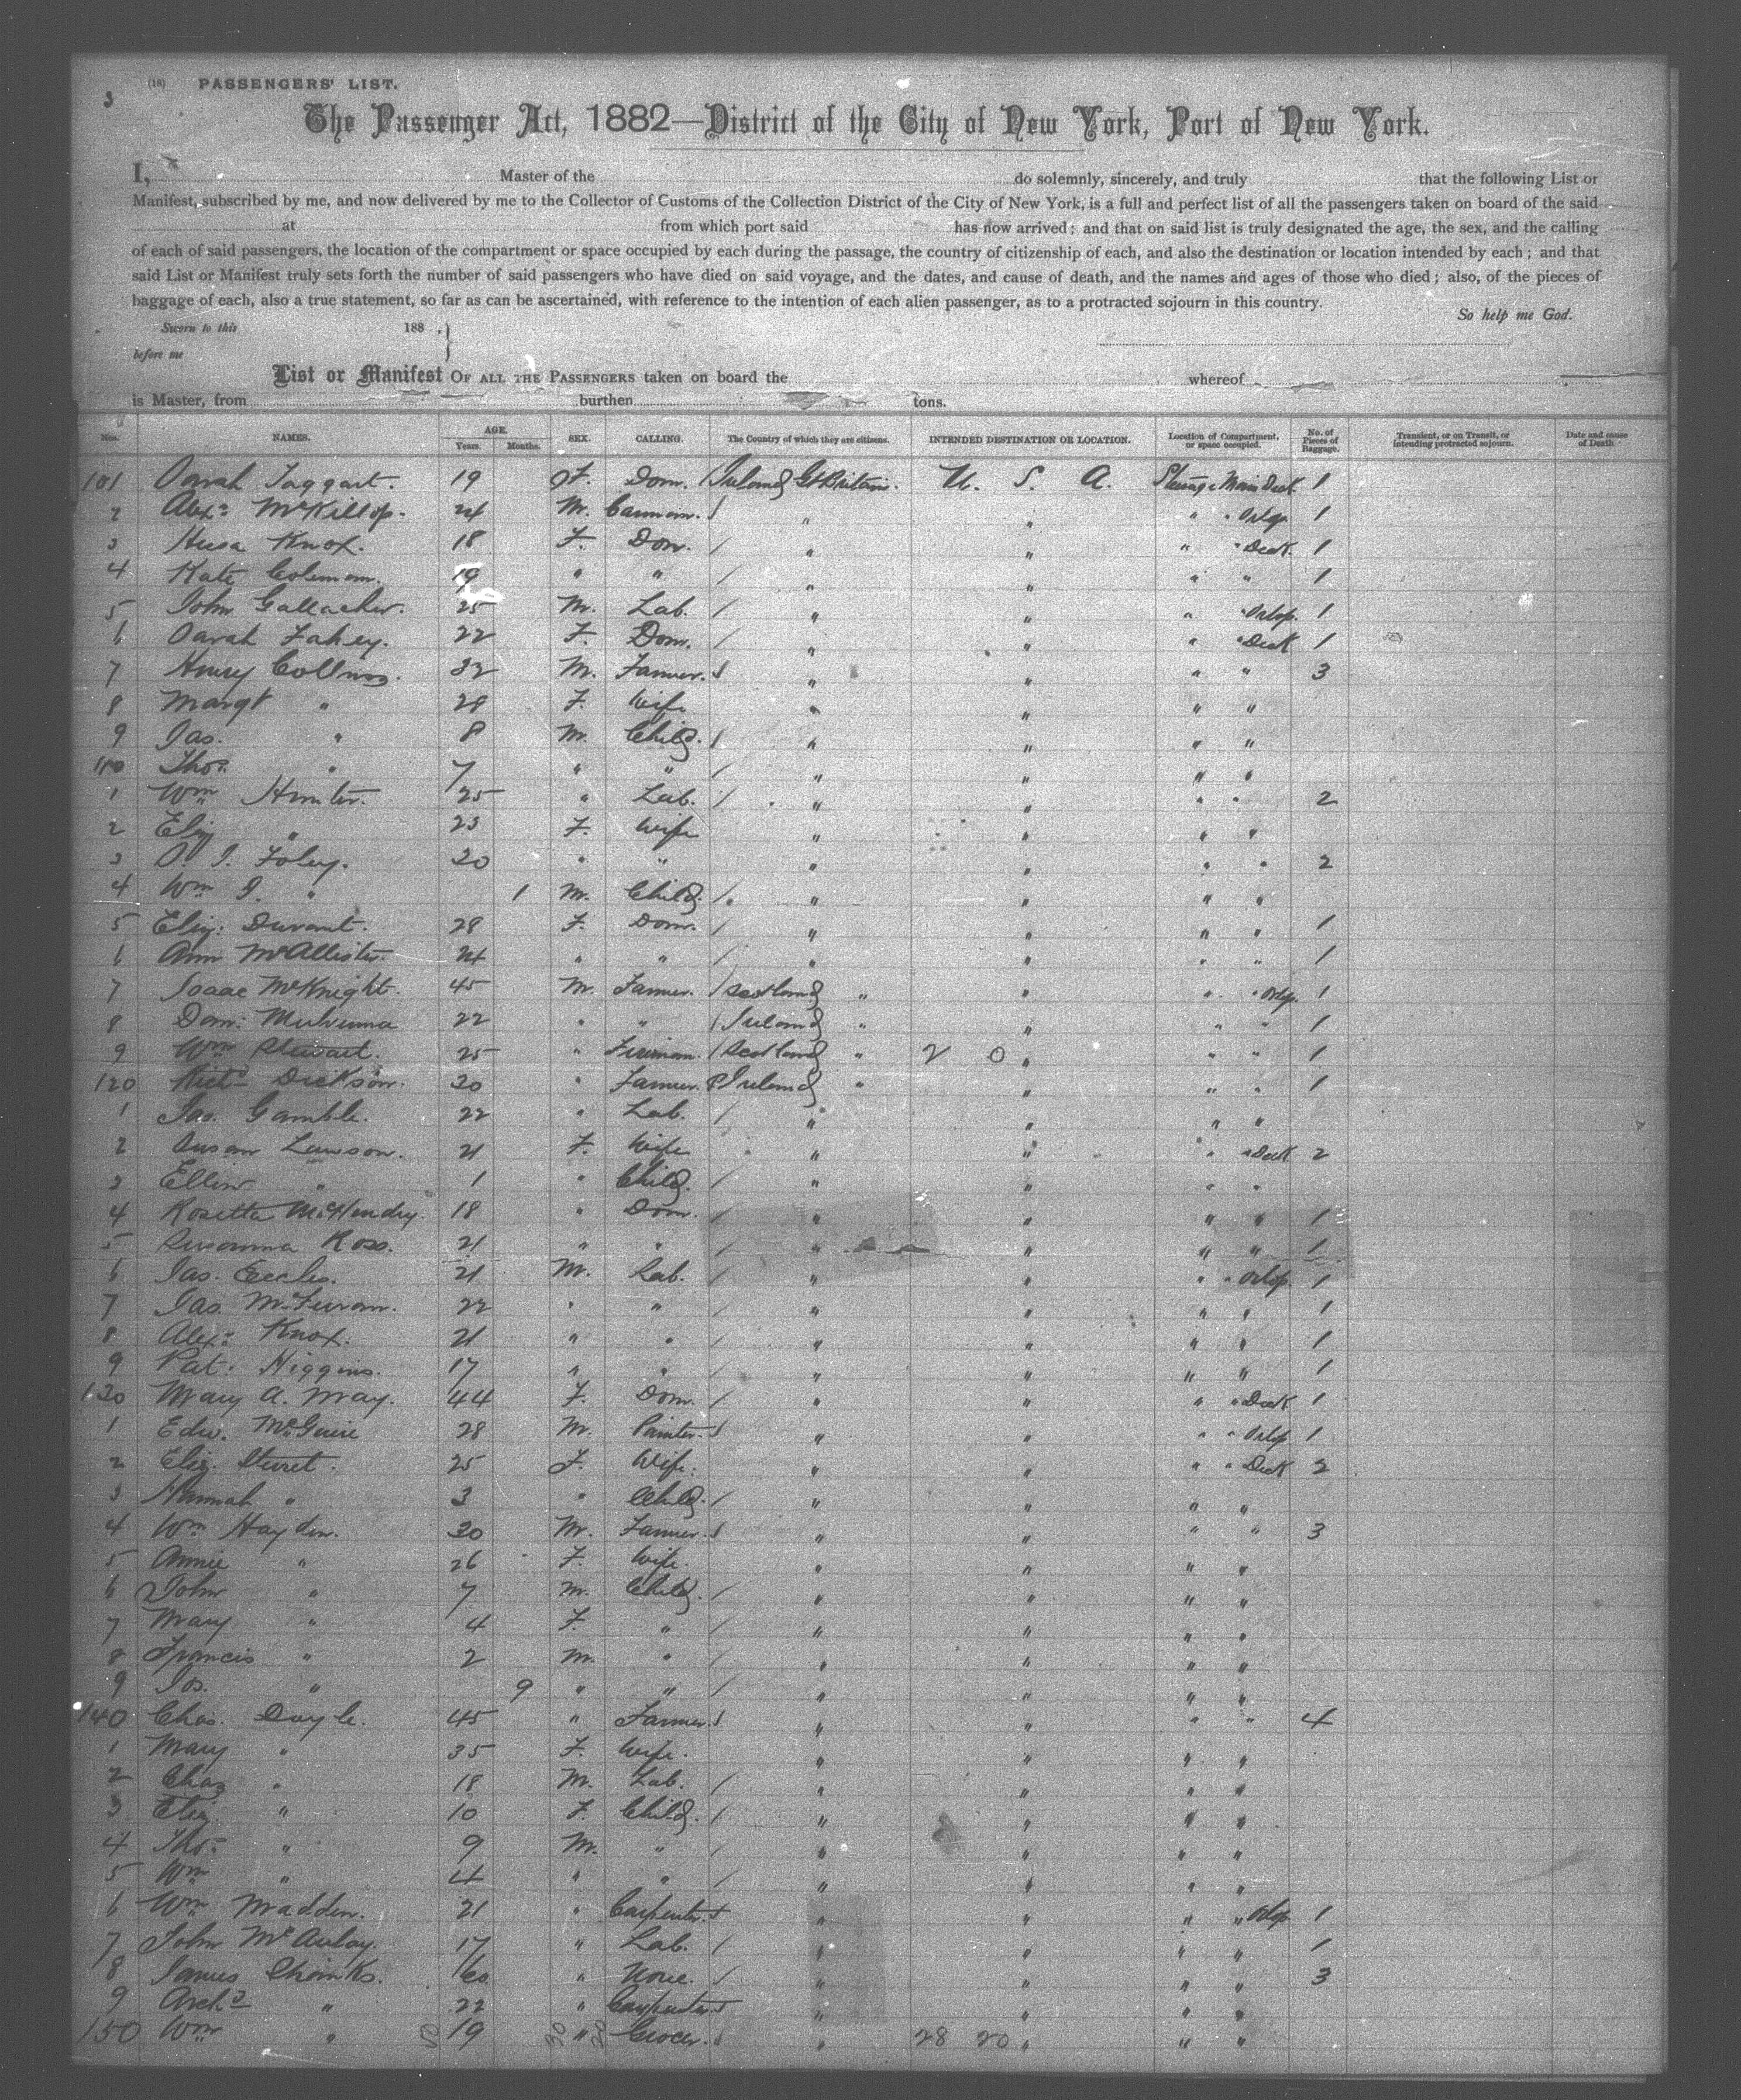 3
(18) PASSENGERS' LIST.
The Passenger Act, 1882—District of the City of New York, Port of New York.
I, Master of the do solemnly, sincerely, and truly that the following List or
Manifest, subscribed by me, and now delivered by me to the Collector of Customs of the Collection District of the City of New York, is a full and perfect list of all the passengers taken on board of the said
at from which port said has now arrived; and that on said list is truly designated the age, the sex, and the calling
of each of said passengers, the location of the compartment or space occupied by each during the passage, the country of citizenship of each, and also the destination or location intended by each; and that
said List or Manifest truly sets forth the number of said passengers who have died on said voyage, and the dates, and cause of death, and the names and ages of those who died; also, of the pieces of
baggage of each, also a true statement, so far as can be ascertained, with reference to the intention of each alien passenger, as to a protracted sojourn in this country.
So help me God.
Sworn to this 188 .
before me
List or Manifest OF ALL THE PASSENGERS taken on board the whereof
is Master, from burthen tons.
Nos. NAMES. AGE. Years. Months. SEX. CALLING. The Country of which they are citizens. INTENDED DESTINATION OR LOCATION. Location of Compartment, or space occupied. No. of Pieces of Baggage. Transient, or on Transit, or intending protracted sojourn. Date and cause of Death
101 Sarah Taggart. 19 F. Dom. / Ireland Gt Britain. U. S. A. Steerage Main Deck 1
2 Alexr McKillop. 24 M. " " " " Orlop. 1
3 Knox. 18 F. Dom. / " " " " Deck. 1
4 Kate Coleman. 19 " " / " " " " 1
5 John Gallacher. 25 M. Lab. / " " " " Orlop. 1
6 Sarah Fahey. 22 F. Dom. / " " " " Deck 1
7 Henry Collins. 32 M. Farmer. " " " " 3
8 Margt " 28 F. Wife " " " "
9 Jas. " 8 M. Child. / " " " "
110 Thos. " 7 " " / " " " "
1 Wm Hunter. 25 " Lab. / " " " " 2
2 Eliz " 23 F. Wife " " " "
3 Foley. 20 " " " " " " 2
4 Wm J. " 1 M. Child. / " " " "
5 Eliz: Durant. 28 F. Dom. / " " " " 1
6 Ann McAllister. 24 " " / " " " " 1
7 Isaac McKnight. 45 M. Farmer. / Scotland " " " " Orlop. 1
8 Dan: Mulvenna 22 " " / Ireland " " " " 1
9 Wm Stewart. 25 " Fireman. / Scotland " 2 0 " " " 1
120 Richd Dickson. 30 " Farmer. Ireland " " " " 1
1 Jas. Gamble. 22 " Lab. / " " " "
2 Susan Lawson. 21 F. Wife " " " " Deck 2
3 Ellen " 1 " Child. / " " " "
4 Rosetta McHendry. 18 " Dom. / " " " " 1
5 Susanna Ross. 21 " " / " " " " 1
6 Jas. Eccles. 21 M. Lab. / " " " " Orlop. 1
7 Jas. 22 " " / " " " " 1
8 Alexr Knox. 21 " " / " " " " 1
9 Pat: Higgins. 17 " " / " " " " 1
130 Mary A. May. 44 F. Dom. / " " " " Deck 1
1 Edw. McGuire 28 M. Painter. " " " " Orlop 1
2 Eliz. 25 F. Wife. " " " " Deck 2
3 Hannah " 3 " Child. / " " " "
4 Wm Hayden. 30 M. Farmer. " " " " 3
5 Annie " 26 F. Wife. " " " "
6 John " 7 M. Child. / " " " "
7 Mary " 4 F. " / " " " "
8 Francis " 2 M. " / " " " "
9 Jos. " 9 " " / " " " "
140 Chas. Doyle. 45 " Farmer. " " " " 4
1 Mary " 35 F. Wife. " " " "
2 Chas " 18 M. Lab. / " " " "
3 Eliz " 10 F. Child. / " " " "
4 Thos. " 9 M. " / " " " "
5 Wm " 4 " " / " " " "
6 Wm Madden. 21 " Carpenter. " " " " Orlop 1
7 John McAulay. 17 " Lab. / " " " " 1
8 James Shanks. 60 " None. / " " " " 3
9 Archd " 22 " Carpenter. " " " "
150 Wm " 50 19 30 " 20 Grocer. " 28 20 " " "